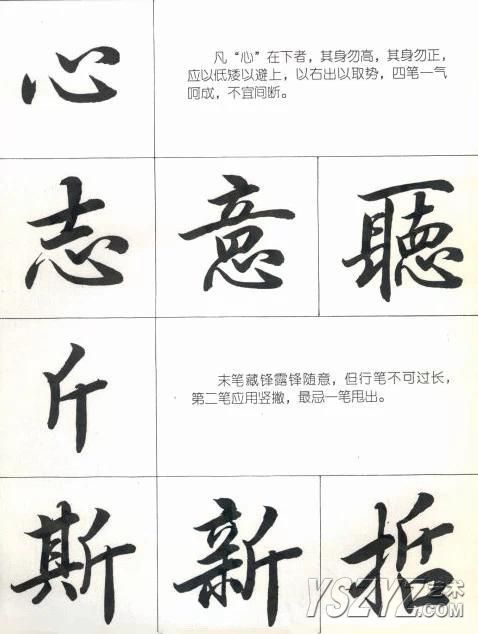 心
凡“心”在下者，其身勿高，其身勿正，
应以低矮以避上，以右出以取势，四笔一气
呵成，不宜间断。
志 意 聽
斤
末笔藏锋露锋随意，但行笔不可过长，
第二笔应用竖撇，最忌一笔甩出。
斯 新 哲
YSZYZ艺术